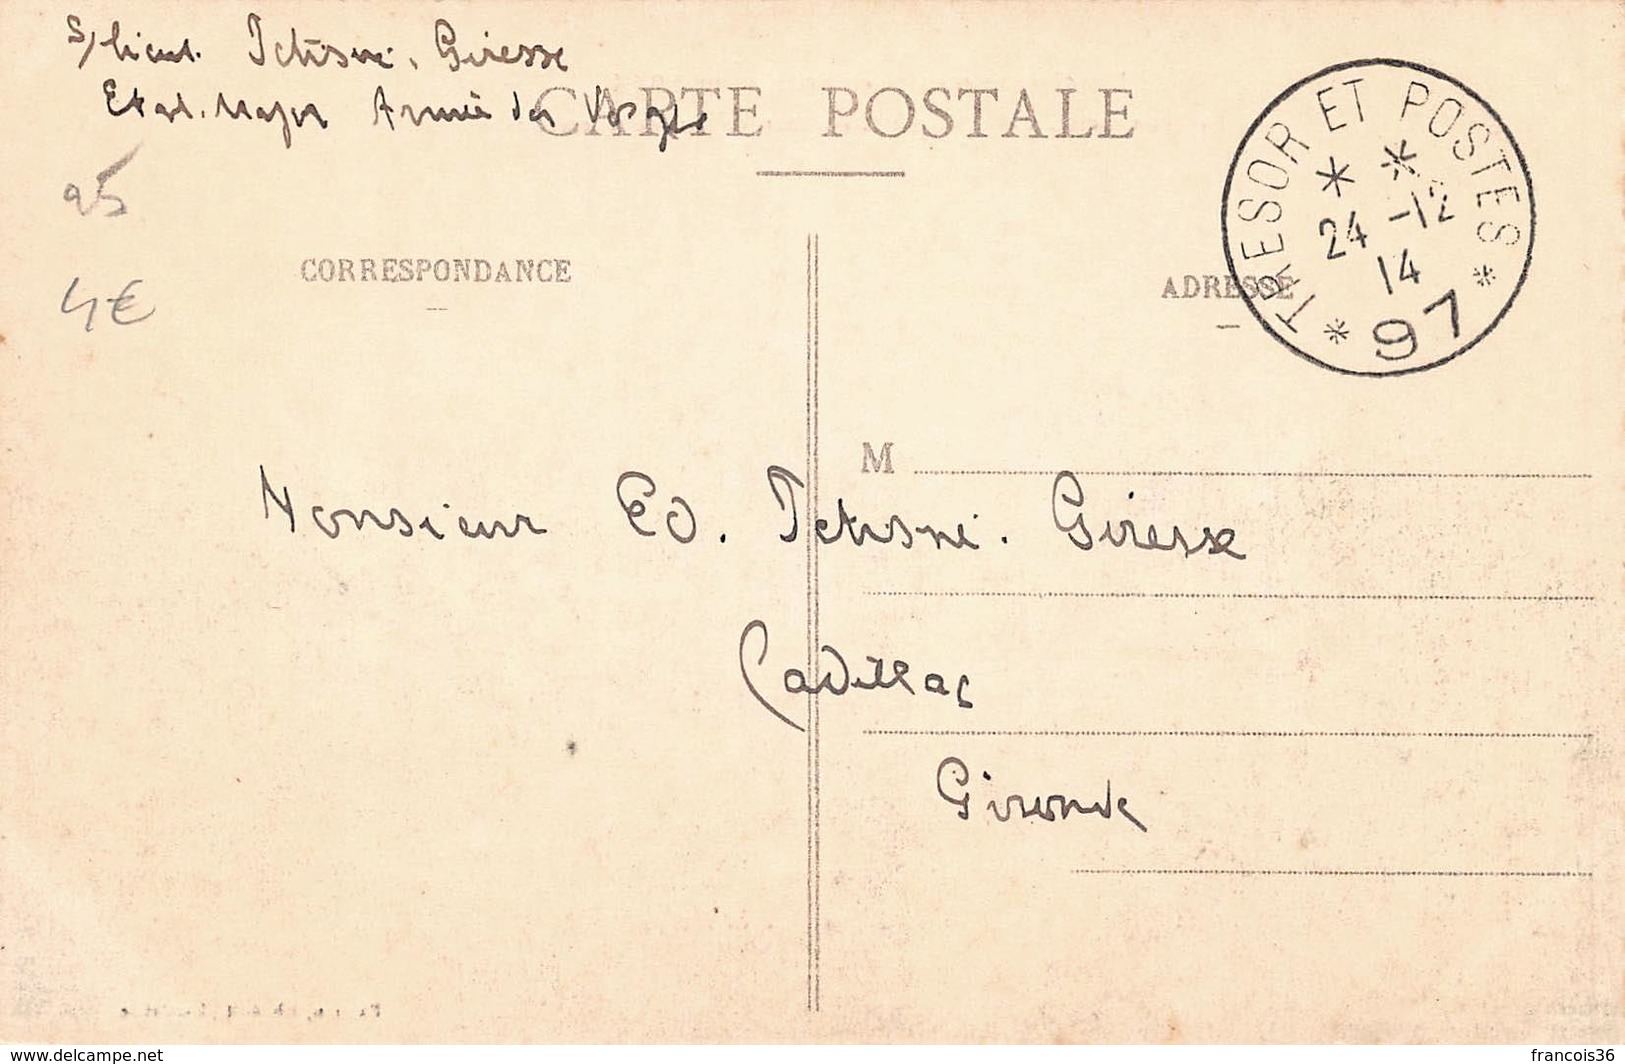 S/lieut. Tetisné. Giresse
Etat. Major Armée des Vosges
CARTE POSTALE
TRESOR ET POSTES
24 -12
14
* 97 *
95
4€
CORRESPONDANCE
ADRESSE
M
Monsieur Ed. Tetisné. Giresse
Cadillac
Gironde
www.delcampe.net
francois36